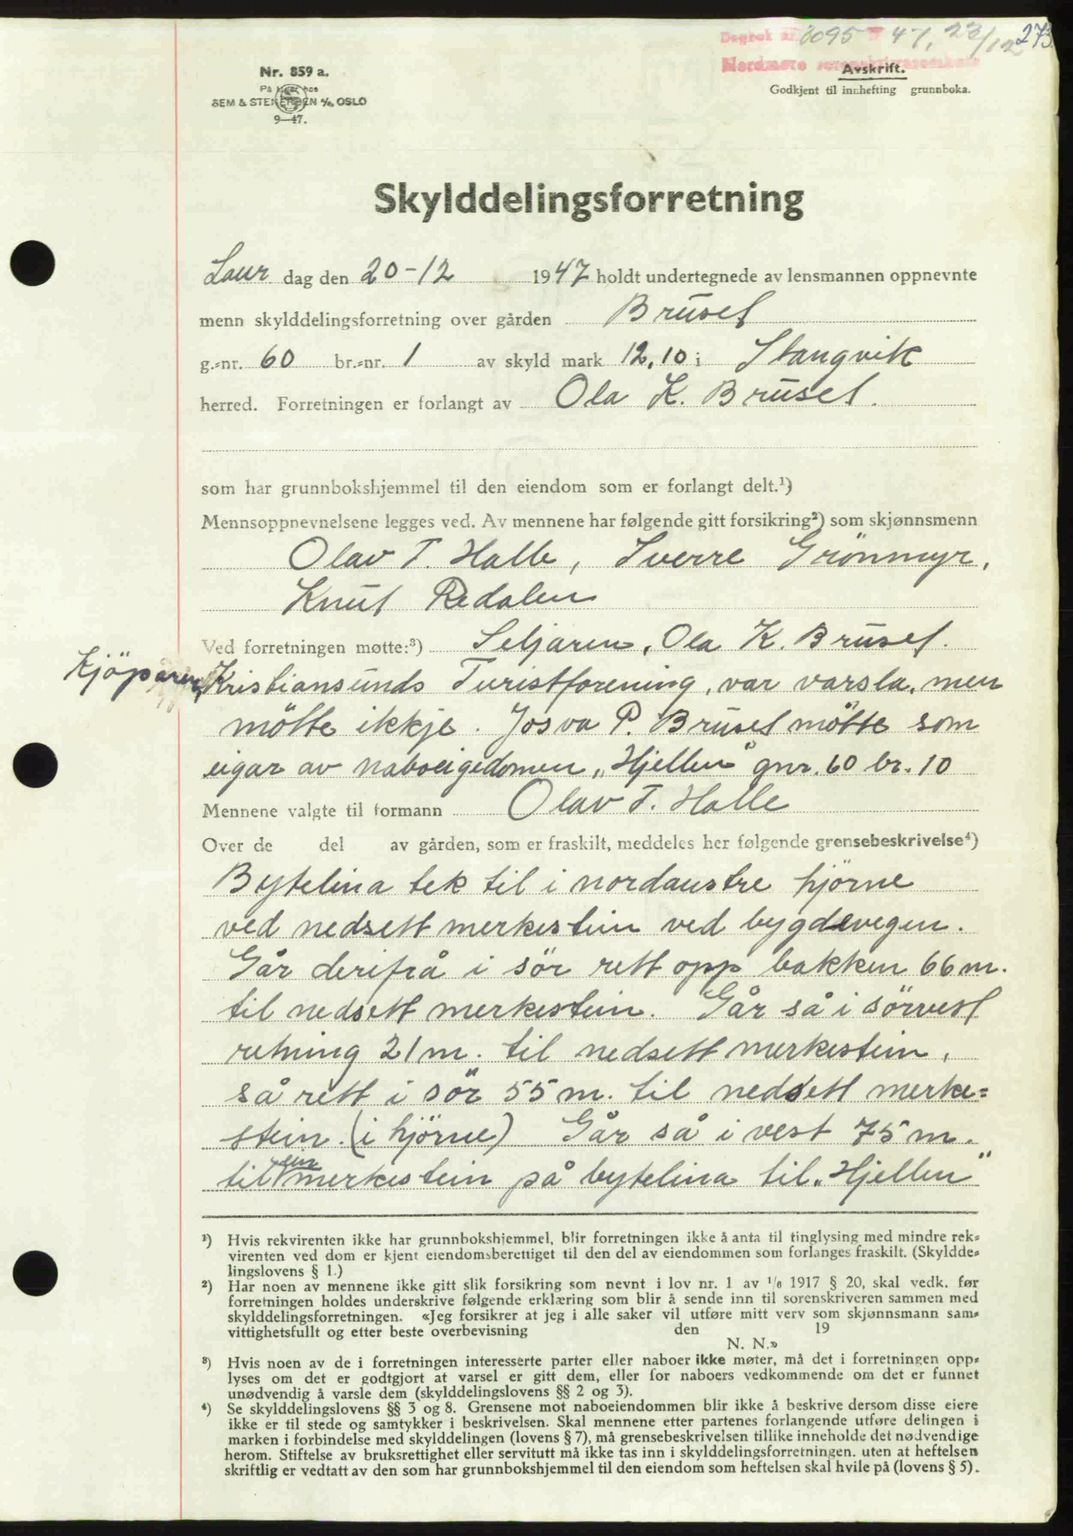 Dagbok nr. 3095 1947, 23/12 273
Nordmøre sorenskriverembete
Nr. 859 a.
På lager hos
SEM & STENERSEN A/S, OSLO
9—47.
Avskrift.
Godkjent til innhefting grunnboka.
Skylddelingsforretning
Laur dag den 20-12 1947 holdt undertegnede av lensmannen oppnevnte
menn skylddelingsforretning over gården Brüset
g.-nr. 60 br.-nr. 1 av skyld mark 12,10 i Stangvik
herred. Forretningen er forlangt av Ola K. Brüset.
som har grunnbokshjemmel til den eiendom som er forlangt delt.¹)
Mennsoppnevnelsene legges ved. Av mennene har følgende gitt forsikring²) som skjønnsmenn
Olav T. Halle, Sverre Grönmyr,
Knut Redalen
Ved forretningen møtte:³) Seljaren, Ola K. Brüset.
Kjöparen, Kristiansunds Turistforening, var varsla, men
mötte ikkje. Josva P. Brüset mötte som
eigar av naboeigedomen „Hjellen" gnr. 60 br. 10
Mennene valgte til formann Olav T. Halle
Over de del av gården, som er fraskilt, meddeles her følgende grensebeskrivelse⁴)
Bytelina tek til i nordaustre hjörne
ved nedsett merkestein ved bygdevegen.
Går derifrå i sör rett opp bakken 66 m.
til nedsett merkestein. Går så i sörvest
retning 21 m. til nedsett merkestein,
så rett i sör 55 m. til nedsett merke=
stein. (i hjörne) Går så i vest 75 m.
til ein merkestein på bytelina til „Hjellen"
¹) Hvis rekvirenten ikke har grunnbokshjemmel, blir forretningen ikke å anta til tinglysing med mindre rek-
virenten ved dom er kjent eiendomsberettiget til den del av eiendommen som forlanges fraskilt. (Skyldde-
lingslovens § 1.)
²) Har noen av mennene ikke gitt slik forsikring som nevnt i lov nr. 1 av 1/6 1917 § 20, skal vedk. før
forretningen holdes underskrive følgende erklæring som blir å sende inn til sorenskriveren sammen med
skylddelingsforretningen. «Jeg forsikrer at jeg i alle saker vil utføre mitt verv som skjønnsmann sam-
vittighetsfullt og etter beste overbevisning den 19
N. N.»
³) Hvis noen av de i forretningen interesserte parter eller naboer ikke møter, må det i forretningen opp-
lyses om det er godtgjort at varsel er gitt dem, eller for naboers vedkommende om det er funnet
unødvendig å varsle dem (skylddelingslovens §§ 2 og 3).
⁴) Se skylddelingslovens §§ 3 og 8. Grensene mot naboeiendommen blir ikke å beskrive dersom disse eiere
ikke er til stede og samtykker i beskrivelsen. Skal mennene etter partenes forlangende utføre delingen i
marken i forbindelse med skylddelingen (lovens § 7), må grensebeskrivelsen tillike inneholde det nødvendige
herom. Stiftelse av bruksrettighet eller servitutt må ikke tas inn i skylddelingsforretningen, uten at heftelsen
skriftlig er vedtatt av den som har grunnbokshjemmel til den eiendom som heftelsen skal hvile på (lovens § 5).